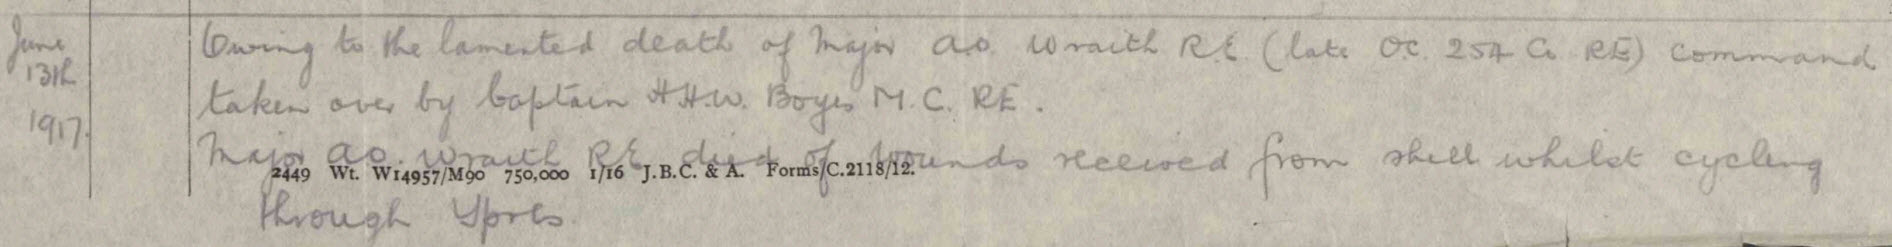 June
13th
1917.
Owing to the lamented death of Major A.O. Wraith R.E. (late O.C. 254 Co RE) command
taken over by Captain H.H.W. Boyes M.C. RE.
Major A.O. Wraith R.E. died of wounds received from shell whilst cycling
2449 Wt. W14957/M90 750,000 1/16 J.B.C. & A. Forms/C.2118/12.
through Ypres